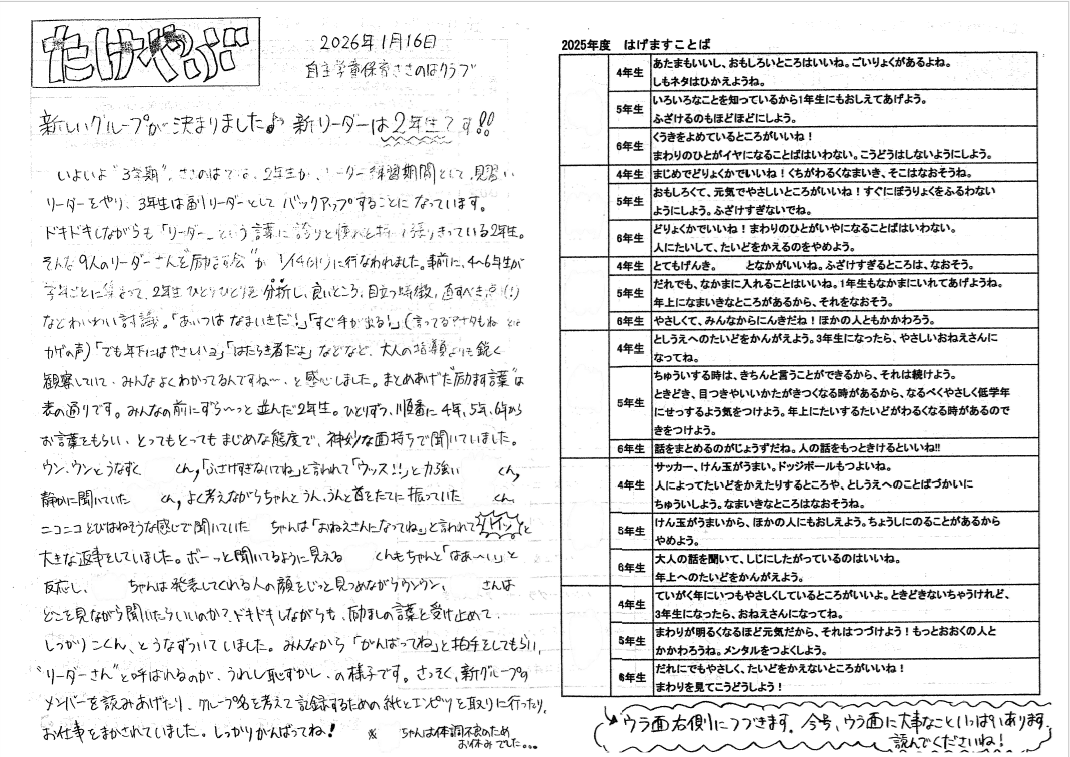 たけやぶ
2026年1月16日
自主学童保育ささのはクラブ
新しいグループが決まりました♪ 新リーダーは2年生です!!
いよいよ“3学期”。ささのはでは、2年生が、リーダー練習期間として、見習い
リーダーをやり、3年生は副リーダーとして バックアップすることに なっています。
ドキドキしながらも「リーダー」という言葉に誇りと憧れを持って張りきっている2年生。
そんな9人のリーダーさんを“励ます会”が 1/14(水)に行なわれました。事前に、4~6年生が
学年ごとに集まって、2年生ひとりひとりを分析し、良いところ、目立つ特徴、直すべき点(!)
などわいわい討議。「あいつはなまいきだ!」「すぐ手が出る!」(言ってるアナタもね とは
カゲの声)「でも年下にはやさしいヨ」「はたらき者だよ」などなど、大人の指導員よりも鋭く
観察していて、みんなよくわかってるんですね~、と感心しました。まとめあげた“励ます言葉”は
表の通りです。みんなの前にずら~っと並んだ2年生。ひとりずつ、順番に4年、5年、6年から
お言葉をもらい、とってもとっても まじめな態度で、神妙な面持ちで聞いていました。
ウン、ウンとうなずく くん,「ふざけすぎないでね」と言われて「ウッス!!」と力強い くん,
静かに聞いていた くん, よく考えながらちゃんとうん、うんと首をたてに振っていた くん、
ニコニコとびはねそうな感じで聞いていた ちゃんは「おねえさんになってね。」と言われて ハイッ と
大きな返事をしていました。ボーっと聞いてるように見える くんもちゃんと「はあ~い。」と
反応し、 ちゃんは発表してくれる人の顔をじっと見つめながらウンウン。 さんは
どこを見ながら聞いたらいいのか?ドキドキしながらも、励ましの言葉を受け止めて、
しっかりこくん、とうなずいていました。みんなから「がんばってね」と拍手をしてもらい、
“リーダーさん”と呼ばれるのが、うれし恥ずかし、の様子です。さっそく、新グループの
メンバーを読みあげたり、グループ名を考えて記録するための紙とエンピツを取りに行ったり、
お仕事をまかされていました。しっかりがんばってね!
※ ちゃんは体調不良のため
お休みでした。。。
2025年度 はげますことば
4年生 あたまもいいし、おもしろいところはいいね。ごいりょくがあるよね。
しもネタはひかえようね。
5年生 いろいろなことを知っているから1年生にもおしえてあげよう。
ふざけるのもほどほどにしよう。
6年生 くうきをよめているところがいいね!
まわりのひとがイヤになることばはいわない。こうどうはしないようにしよう。
4年生 まじめでどりょくかでいいね!くちがわるくなまいき、そこはなおそうね。
5年生 おもしろくて、元気でやさしいところがいいね!すぐにぼうりょくをふるわない
ようにしよう。ふざけすぎないでね。
6年生 どりょくかでいいね!まわりのひとがいやになることばはいわない。
人にたいして、たいどをかえるのをやめよう。
4年生 とてもげんき。 となかがいいね。ふざけすぎるところは、なおそう。
5年生 だれでも、なかまに入れることはいいね。1年生もなかまにいれてあげようね。
年上になまいきなところがあるから、それをなおそう。
6年生 やさしくて、みんなからにんきだね!ほかの人ともかかわろう。
4年生 としうえへのたいどをかんがえよう。3年生になったら、やさしいおねえさんに
なってね。
5年生 ちゅういする時は、きちんと言うことができるから、それは続けよう。
ときどき、目つきやいいかたがきつくなる時があるから、なるべくやさしく低学年
にせっするよう気をつけよう。年上にたいするたいどがわるくなる時があるので
きをつけよう。
6年生 話をまとめるのがじょうずだね。人の話をもっときけるといいね!!
4年生 サッカー、けん玉がうまい。ドッジボールもつよいね。
人によってたいどをかえたりするところや、としうえへのことばづかいに
ちゅういしよう。なまいきなところはなおそうね。
5年生 けん玉がうまいから、ほかの人にもおしえよう。ちょうしにのることがあるから
やめよう。
6年生 大人の話を聞いて、しじにしたがっているのはいいね。
年上へのたいどをかんがえよう。
4年生 ていがく年にいつもやさしくしているところがいいよ。ときどきないちゃうけれど、
3年生になったら、おねえさんになってね。
5年生 まわりが明るくなるほど元気だから、それはつづけよう!もっとおおくの人と
かかわろうね。メンタルをつよくしよう。
6年生 だれにでもやさしく、たいどをかえないところがいいね!
まわりを見てこうどうしよう!
ウラ面右側につづきます。今号、ウラ面に大事なこといっぱいあります。
読んでくださいね!